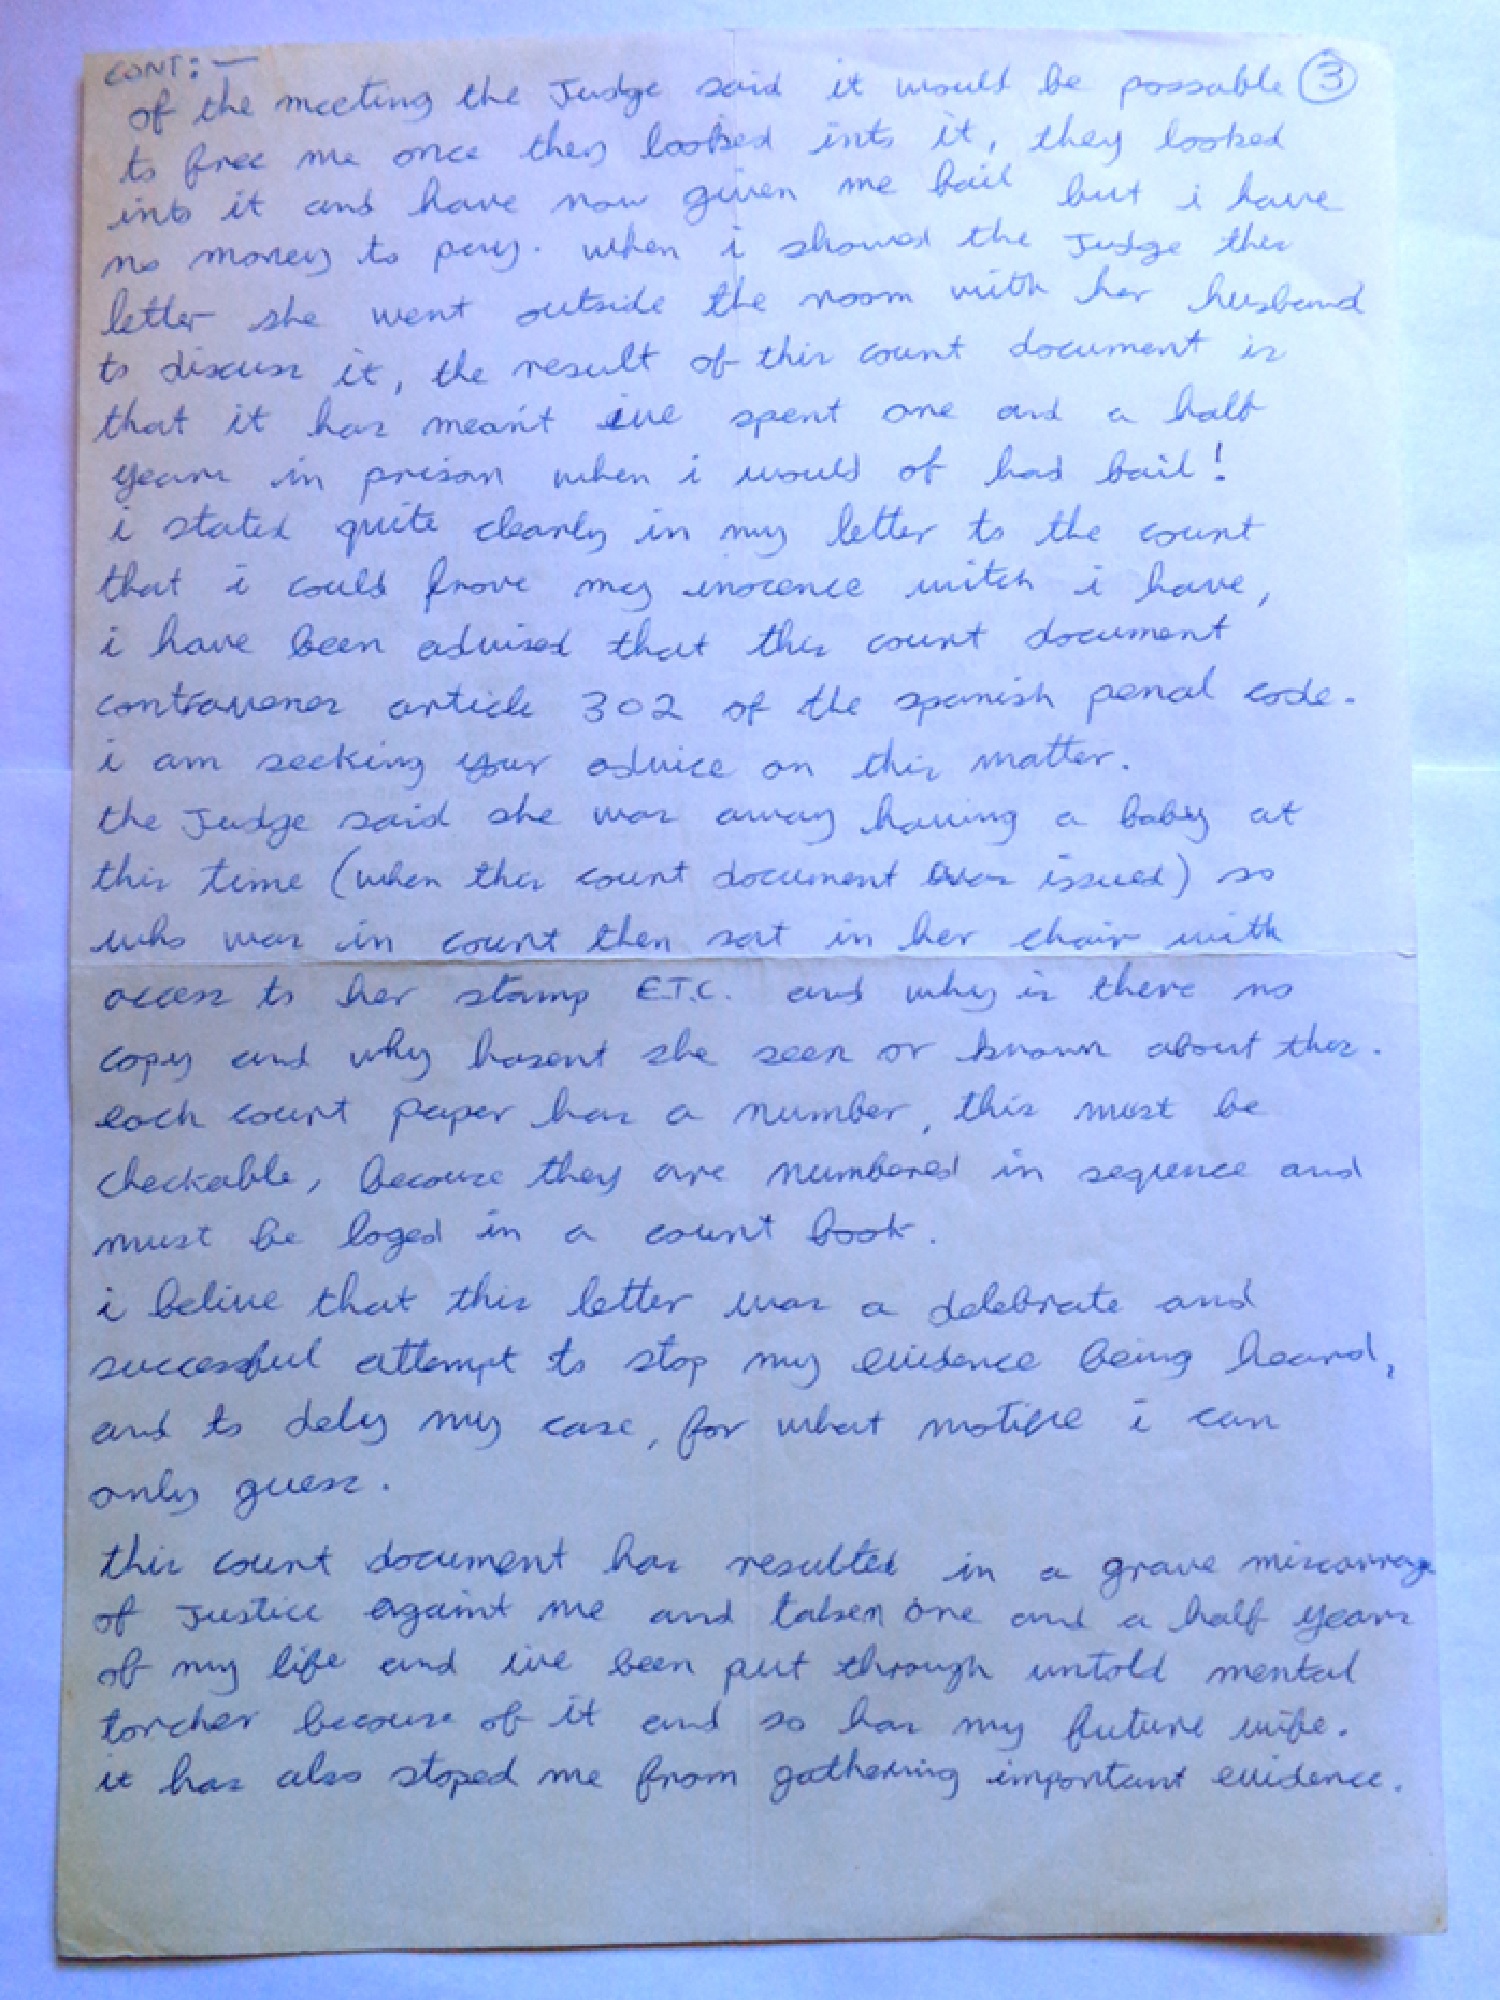 CONT: —
③
of the meeting the Judge said it would be possable
to free me once they looked into it, they looked
into it and have now given me bail but i have
no money to pay. when i showed the Judge this
letter she went outside the room with her husband
to discuss it, the result of this court document is
that it has mean't ive spent one and a half
years in prison when i would of had bail!
i stated quite clearly in my letter to the court
that i could prove my inocence witch i have,
i have been advised that this court document
contravenes article 302 of the spanish penal code.
i am seeking your advice on this matter.
the Judge said she was away having a baby at
this time (when this court document was issued) so
who was in court then sat in her chair with
access to her stamp E.T.C. and why is there no
copy and why hasent she seen or known about this.
each court paper has a number, this must be
checkable, because they are numbered in seqence and
must be loged in a court book.
i belive that this letter was a delebrate and
successful attempt to stop my evidence being heard,
and to dely my case, for what motive i can
only guess.
this court document has resulted in a grave miscarrage
of Justice against me and taken one and a half years
of my life and ive been put through untold mental
torcher because of it and so has my future wife.
it has also stoped me from gathering important evidence.